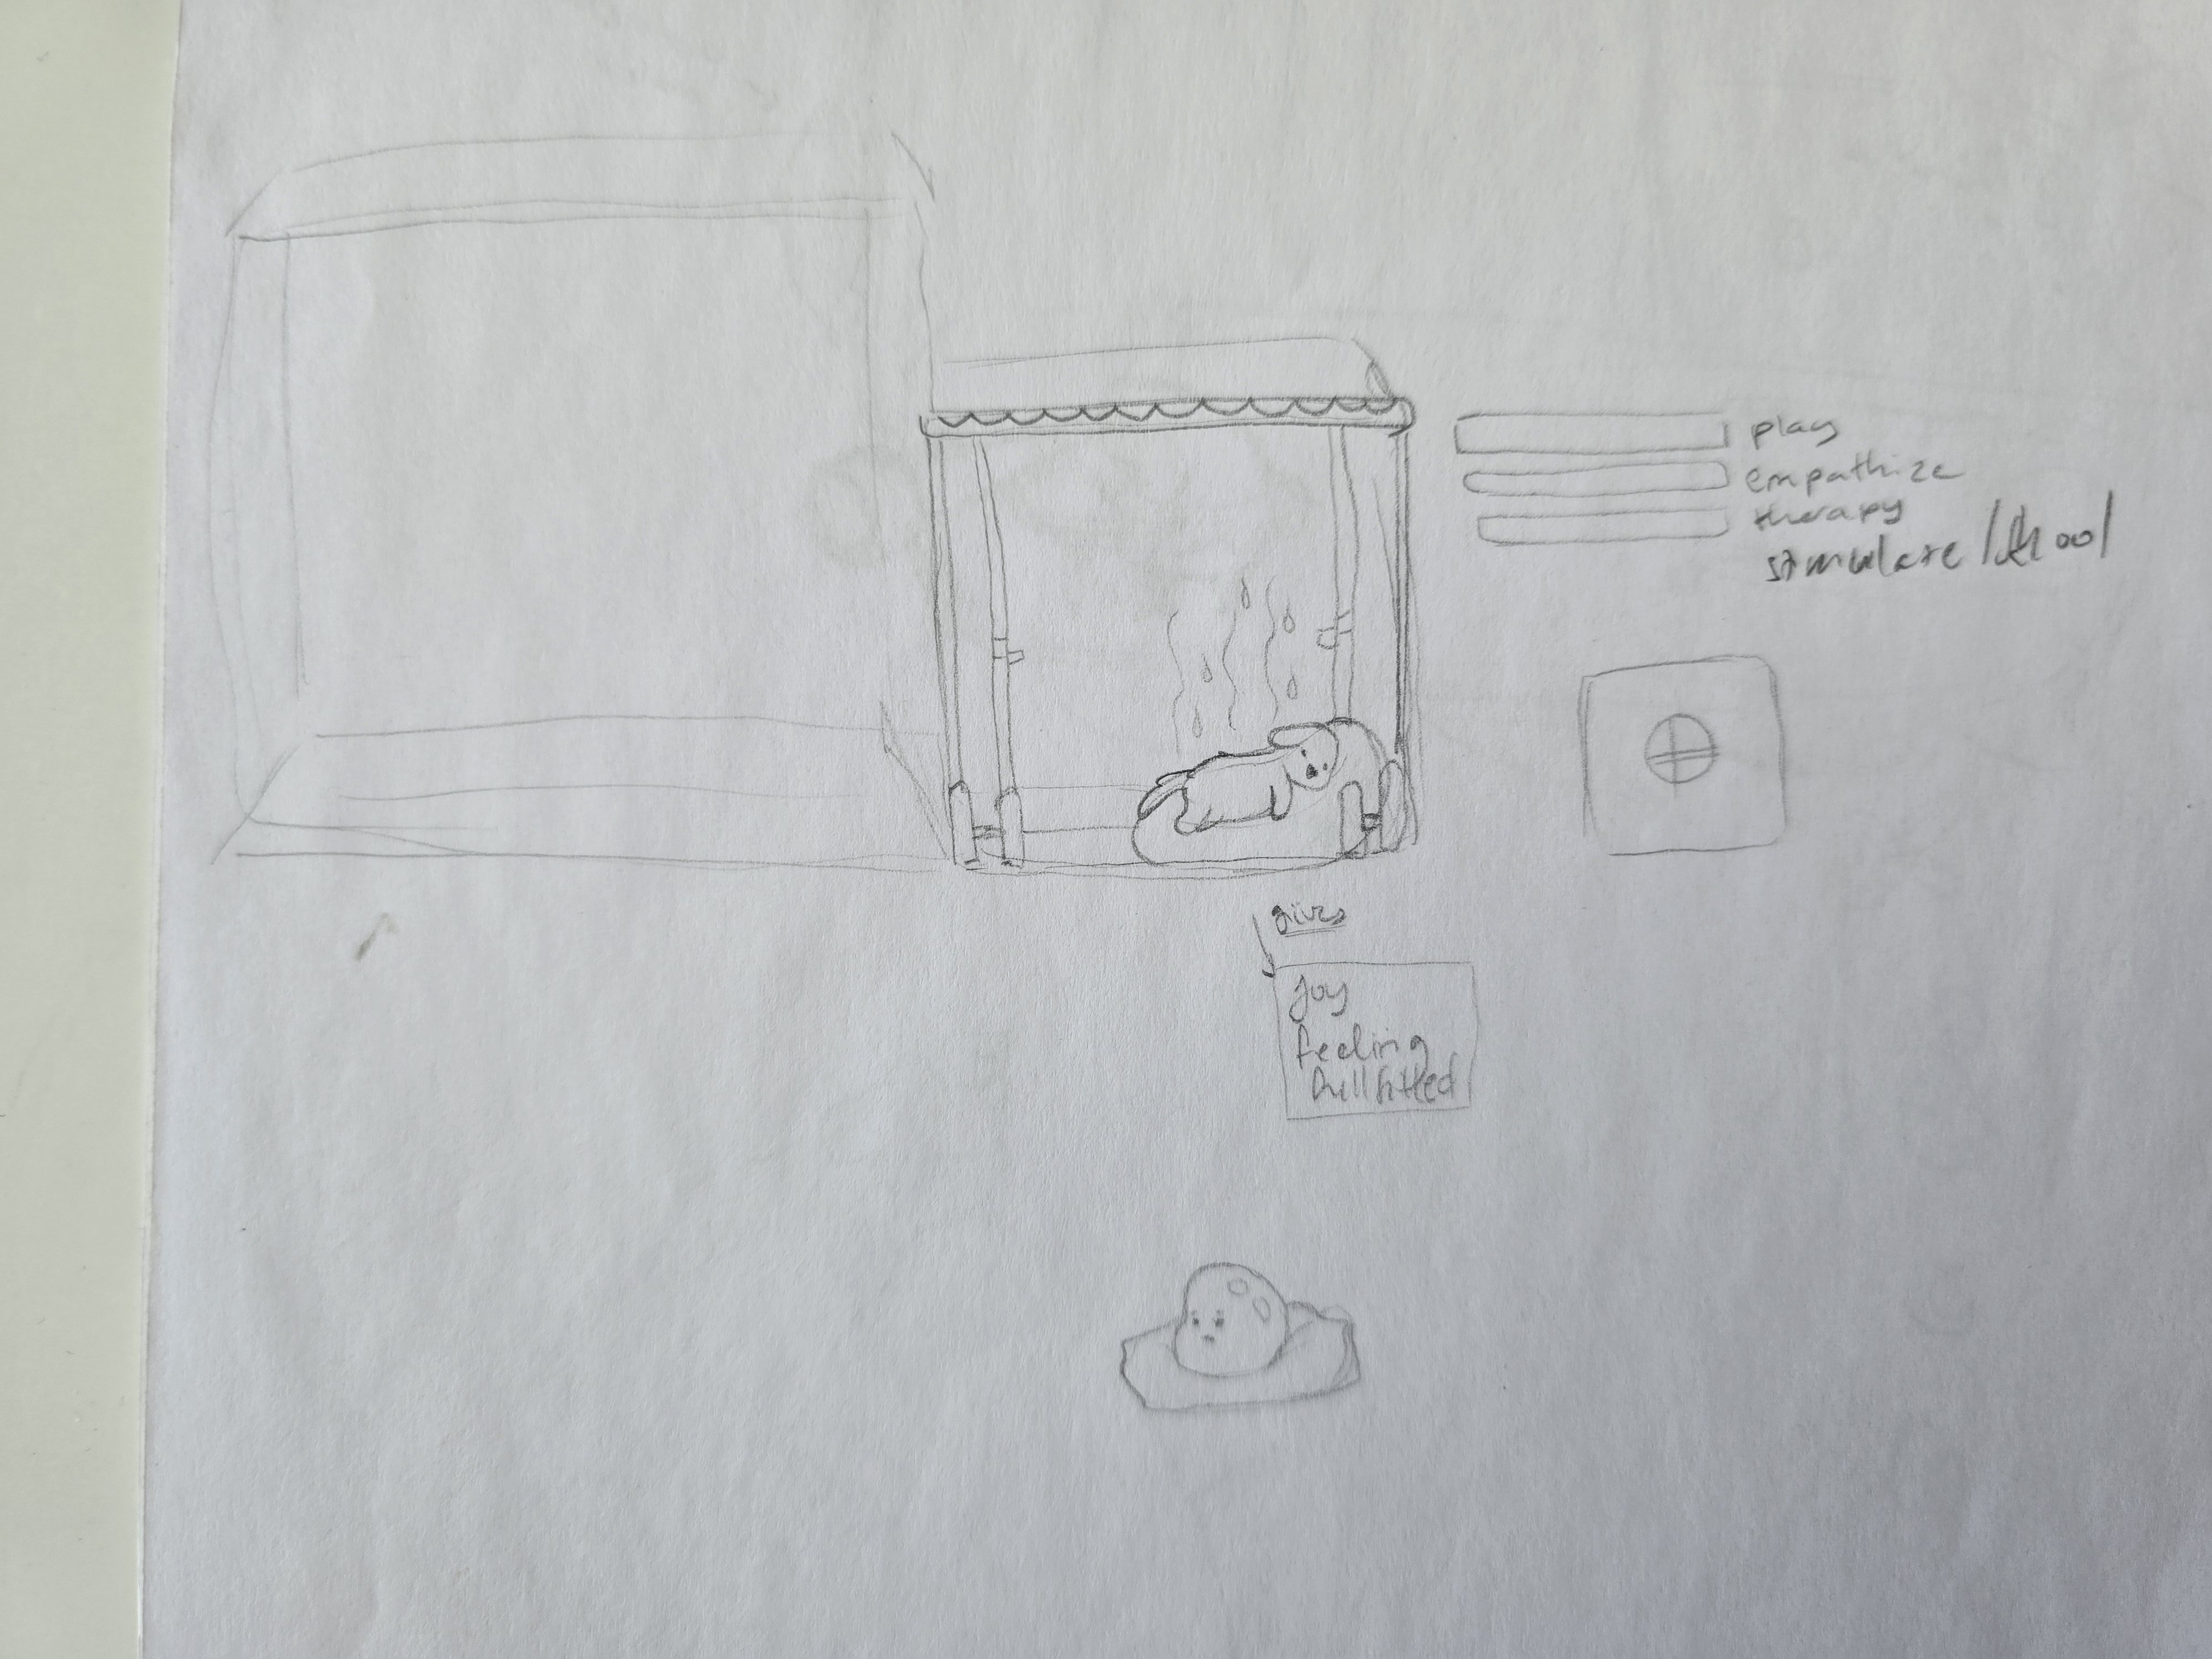 play
empathize
therapy
stimulate /
gives
joy
feeling
fullfilled